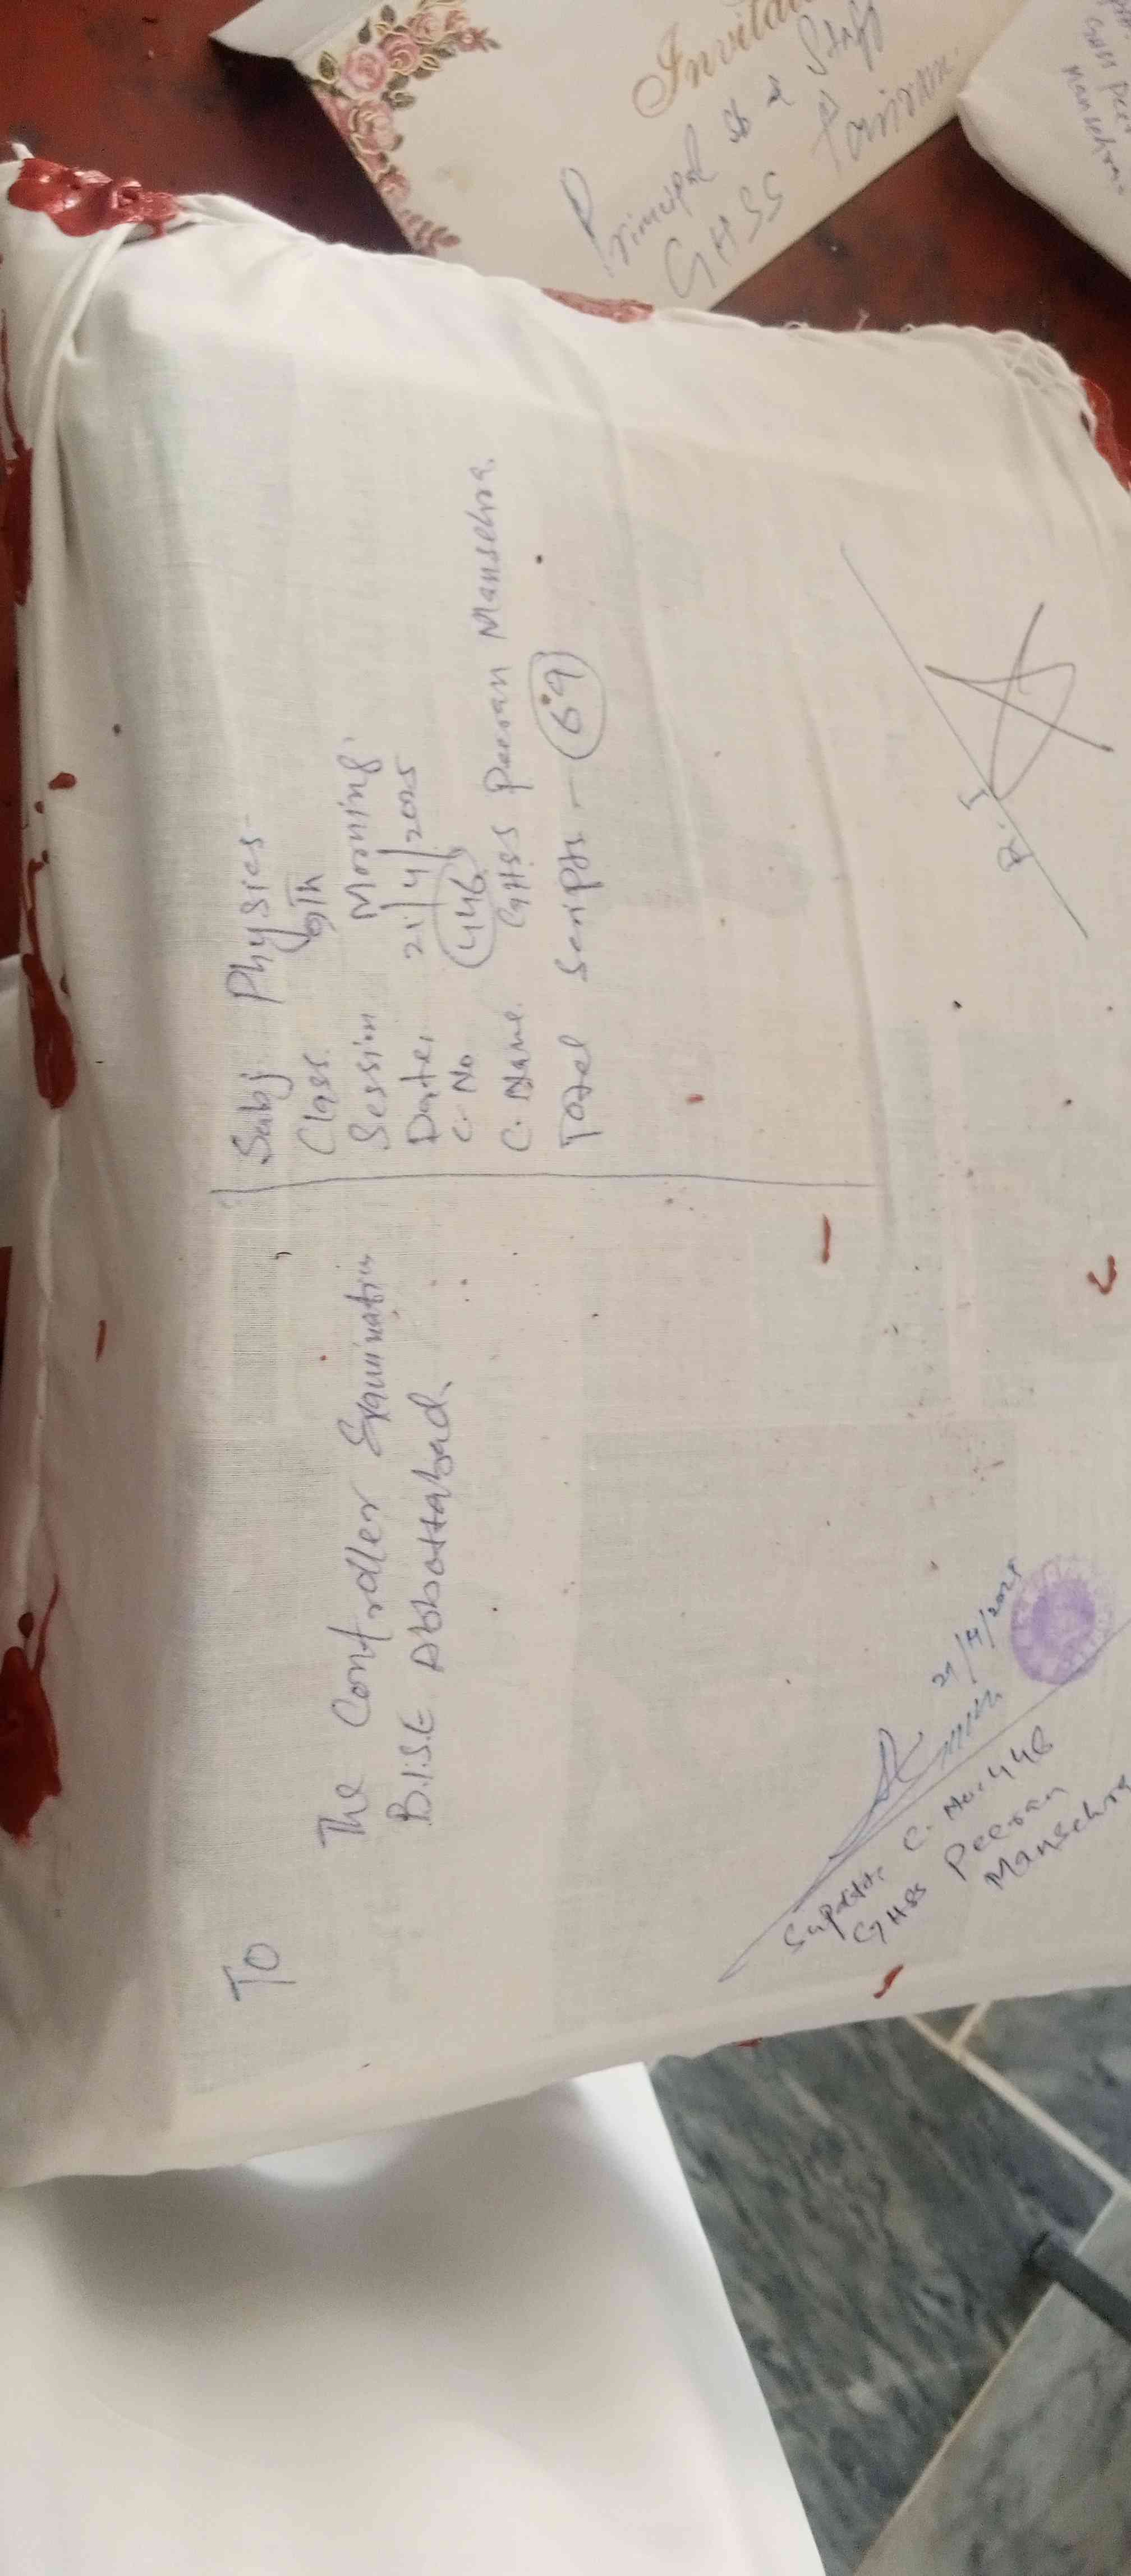 To
The Controller Examination
B.I.S.E Abbottabad.
Subj. Physics-
Class. 9Th
Session Morning.
Date. 21/4/2025
C. No. 446
C. Name. GHSS Peeran Mansehra.
Total Scripts - 69
21/4/2025
Supdtt: C. No. 446
GHSS Peeran
Mansehra
R.I
Principal &
GHSS
GHSS Peer
Mansehra